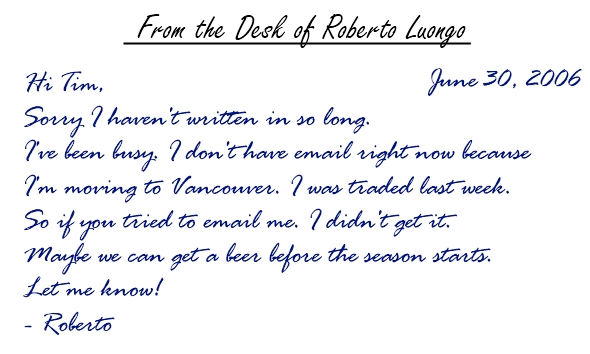 From the Desk of Roberto Luongo
Hi Tim,
June 30, 2006
Sorry I haven't written in so long.
I've been busy. I don't have email right now because
I'm moving to Vancouver. I was traded last week.
So if you tried to email me. I didn't get it.
Maybe we can get a beer before the season starts.
Let me know!
- Roberto